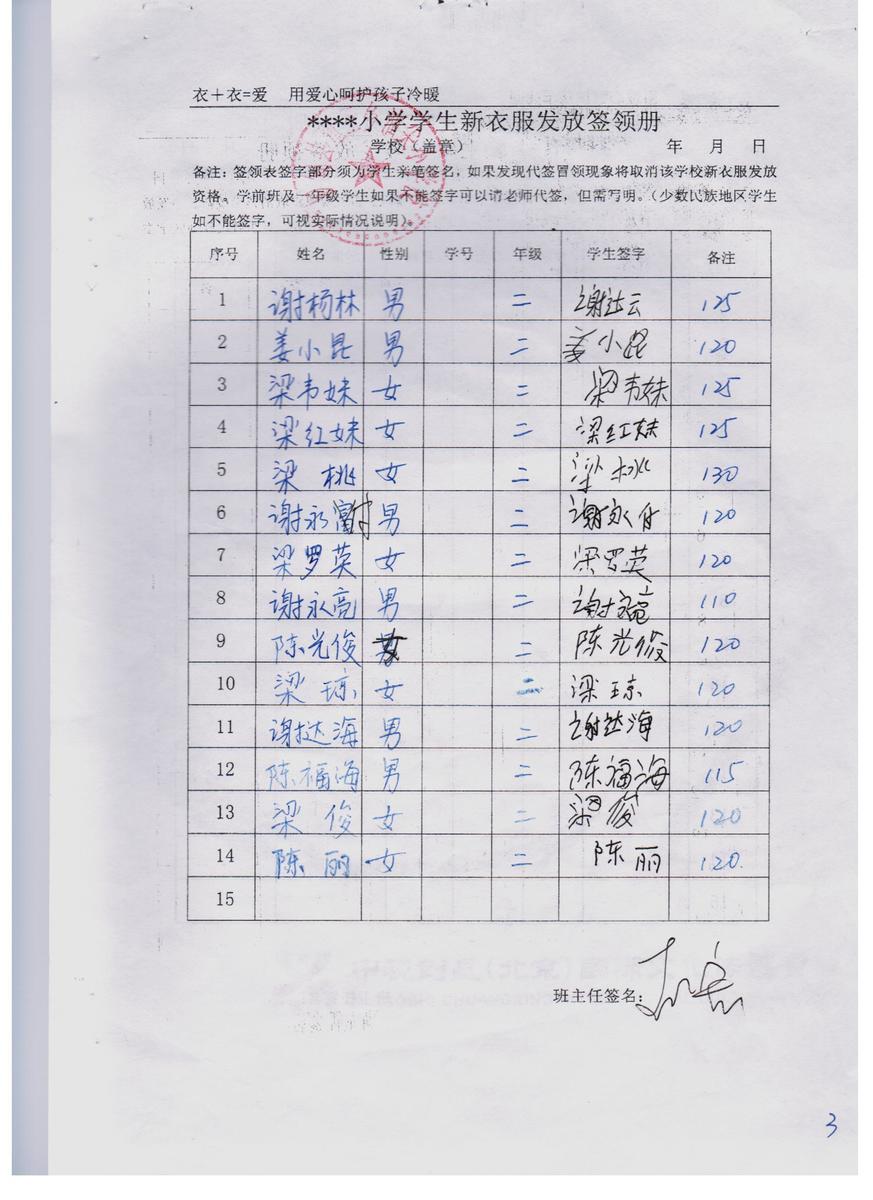 衣＋衣=爱 用爱心呵护孩子冷暖
****小学学生新衣服发放签领册
学校（盖章） 年 月 日
备注：签领表签字部分须为学生亲笔签名，如果发现代签冒领现象将取消该学校新衣服发放
资格。学前班及一年级学生如果不能签字可以请老师代签，但需写明。（少数民族地区学生
如不能签字，可视实际情况说明）。
序号 姓名 性别 学号 年级 学生签字 备注
1 谢杨林 男 二 谢达云 125
2 姜小昆 男 二 姜小昆 120
3 梁韦妹 女 二 梁韦妹 125
4 梁红妹 女 二 梁红妹 125
5 梁桃 女 二 梁桃 130
6 谢永富 男 二 谢永付 120
7 梁罗英 女 二 梁罗英 120
8 谢永亮 男 二 谢永亮 110
9 陈光俊 二 陈光俊 120
10 梁琼 女 二 梁琼 120
11 谢达海 男 二 谢达海 120
12 陈福海 男 二 陈福海 115
13 梁俊 女 二 梁俊 120
14 陈丽 女 二 陈丽 120.
15
班主任签名：
3